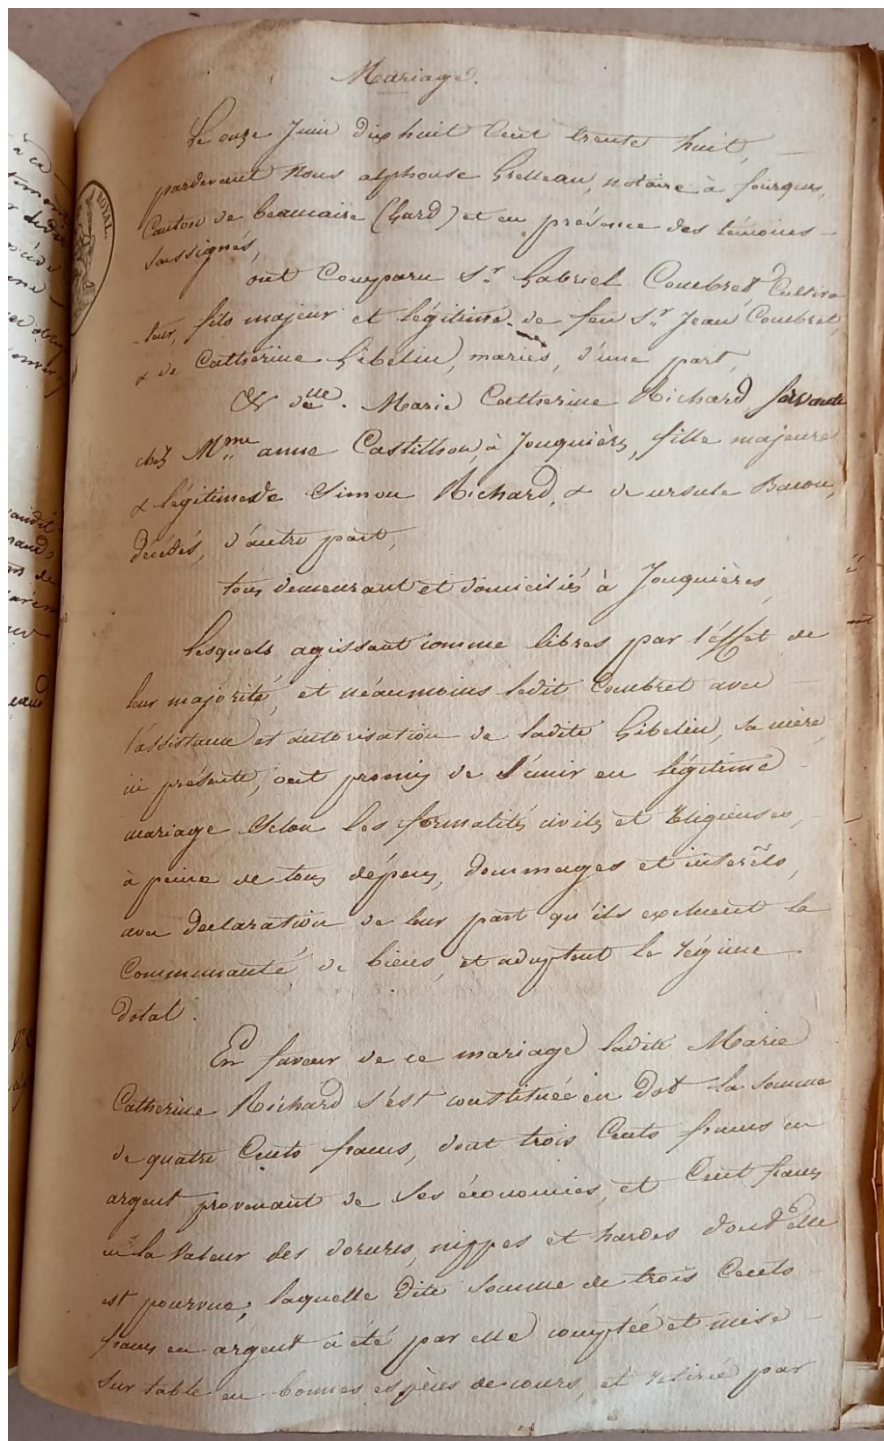 Mariage.
Le onze Juin dix huit Cent trente huit,
pardevant Nous alphonse Grelleau, notaire à fourques,
Canton de beaucaire (Gard) et en présence des témoins
soussignés,
ont Comparu Sr. Gabriel Coubret Cultiva
teur, fils majeur et légitime de feu Sr. Jean Coubret,
& de Catherine Gibelin, mariés, d'une part,
Et delle. Marie Catherine Richard servante
chez Mme anne Castillon à Jonquières, fille majeure
& légitime de Simon Richard, & de ursule Bacou,
décédés, d'autre part,
tous demeurant et domiciliés à Jonquières,
Lesquels agissant comme libres par l'effet de
leur majorité, et néaumoins ledit Coubret avec
l'assistance et autorisation de ladite Gibelin, sa mère,
ici présente, ont promis de s'unir en légitime
mariage selon les formalités civiles et religieuses,
à peine de tous dépens, dommages et interêts,
avec declaration de leur part qu'ils excluent la
Communauté de biens, et adoptent le régime
dotal.
En faveur de ce mariage ladite Marie
Catherine Richard s'est constituée en Dot la somme
de quatre Cents francs, dont trois Cents francs en
argent provenant de ses économies, et Cent francs
en la valeur des dorures, nippes et hardes dont elle
est pourvue; laquelle dite somme de trois Cents
francs en argent a été par elle comptée et mise
sur table en bonnes espèces de cours, et retirée par
ROYAL